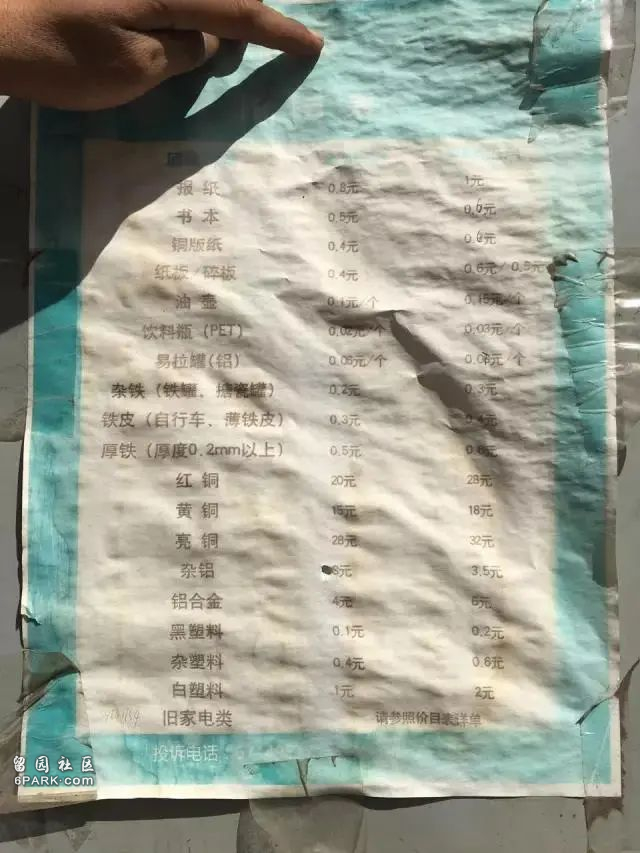 报纸 0.8元 1元
书本 0.5元 0.6元
铜版纸 0.4元 0.6元
纸板/碎板 0.4元 0.6元/0.5元
油壶 0.1元/个 0.15元/个
饮料瓶(PET) 0.02元/个 0.03元/个
易拉罐(铝) 0.06元/个
杂铁(铁罐、搪瓷罐) 0.2元 0.3元
铁皮(自行车、薄铁皮) 0.3元 0.4元
厚铁(厚度0.2mm以上) 0.5元 0.6元
红铜 20元 28元
黄铜 15元 18元
亮铜 28元 32元
杂铝 3元 3.5元
铝合金 4元 6元
黑塑料 0.1元 0.2元
杂塑料 0.4元 0.6元
白塑料 1元 2元
旧家电类 请参照价目表详单
投诉电话:
留园社区
6PARK.com